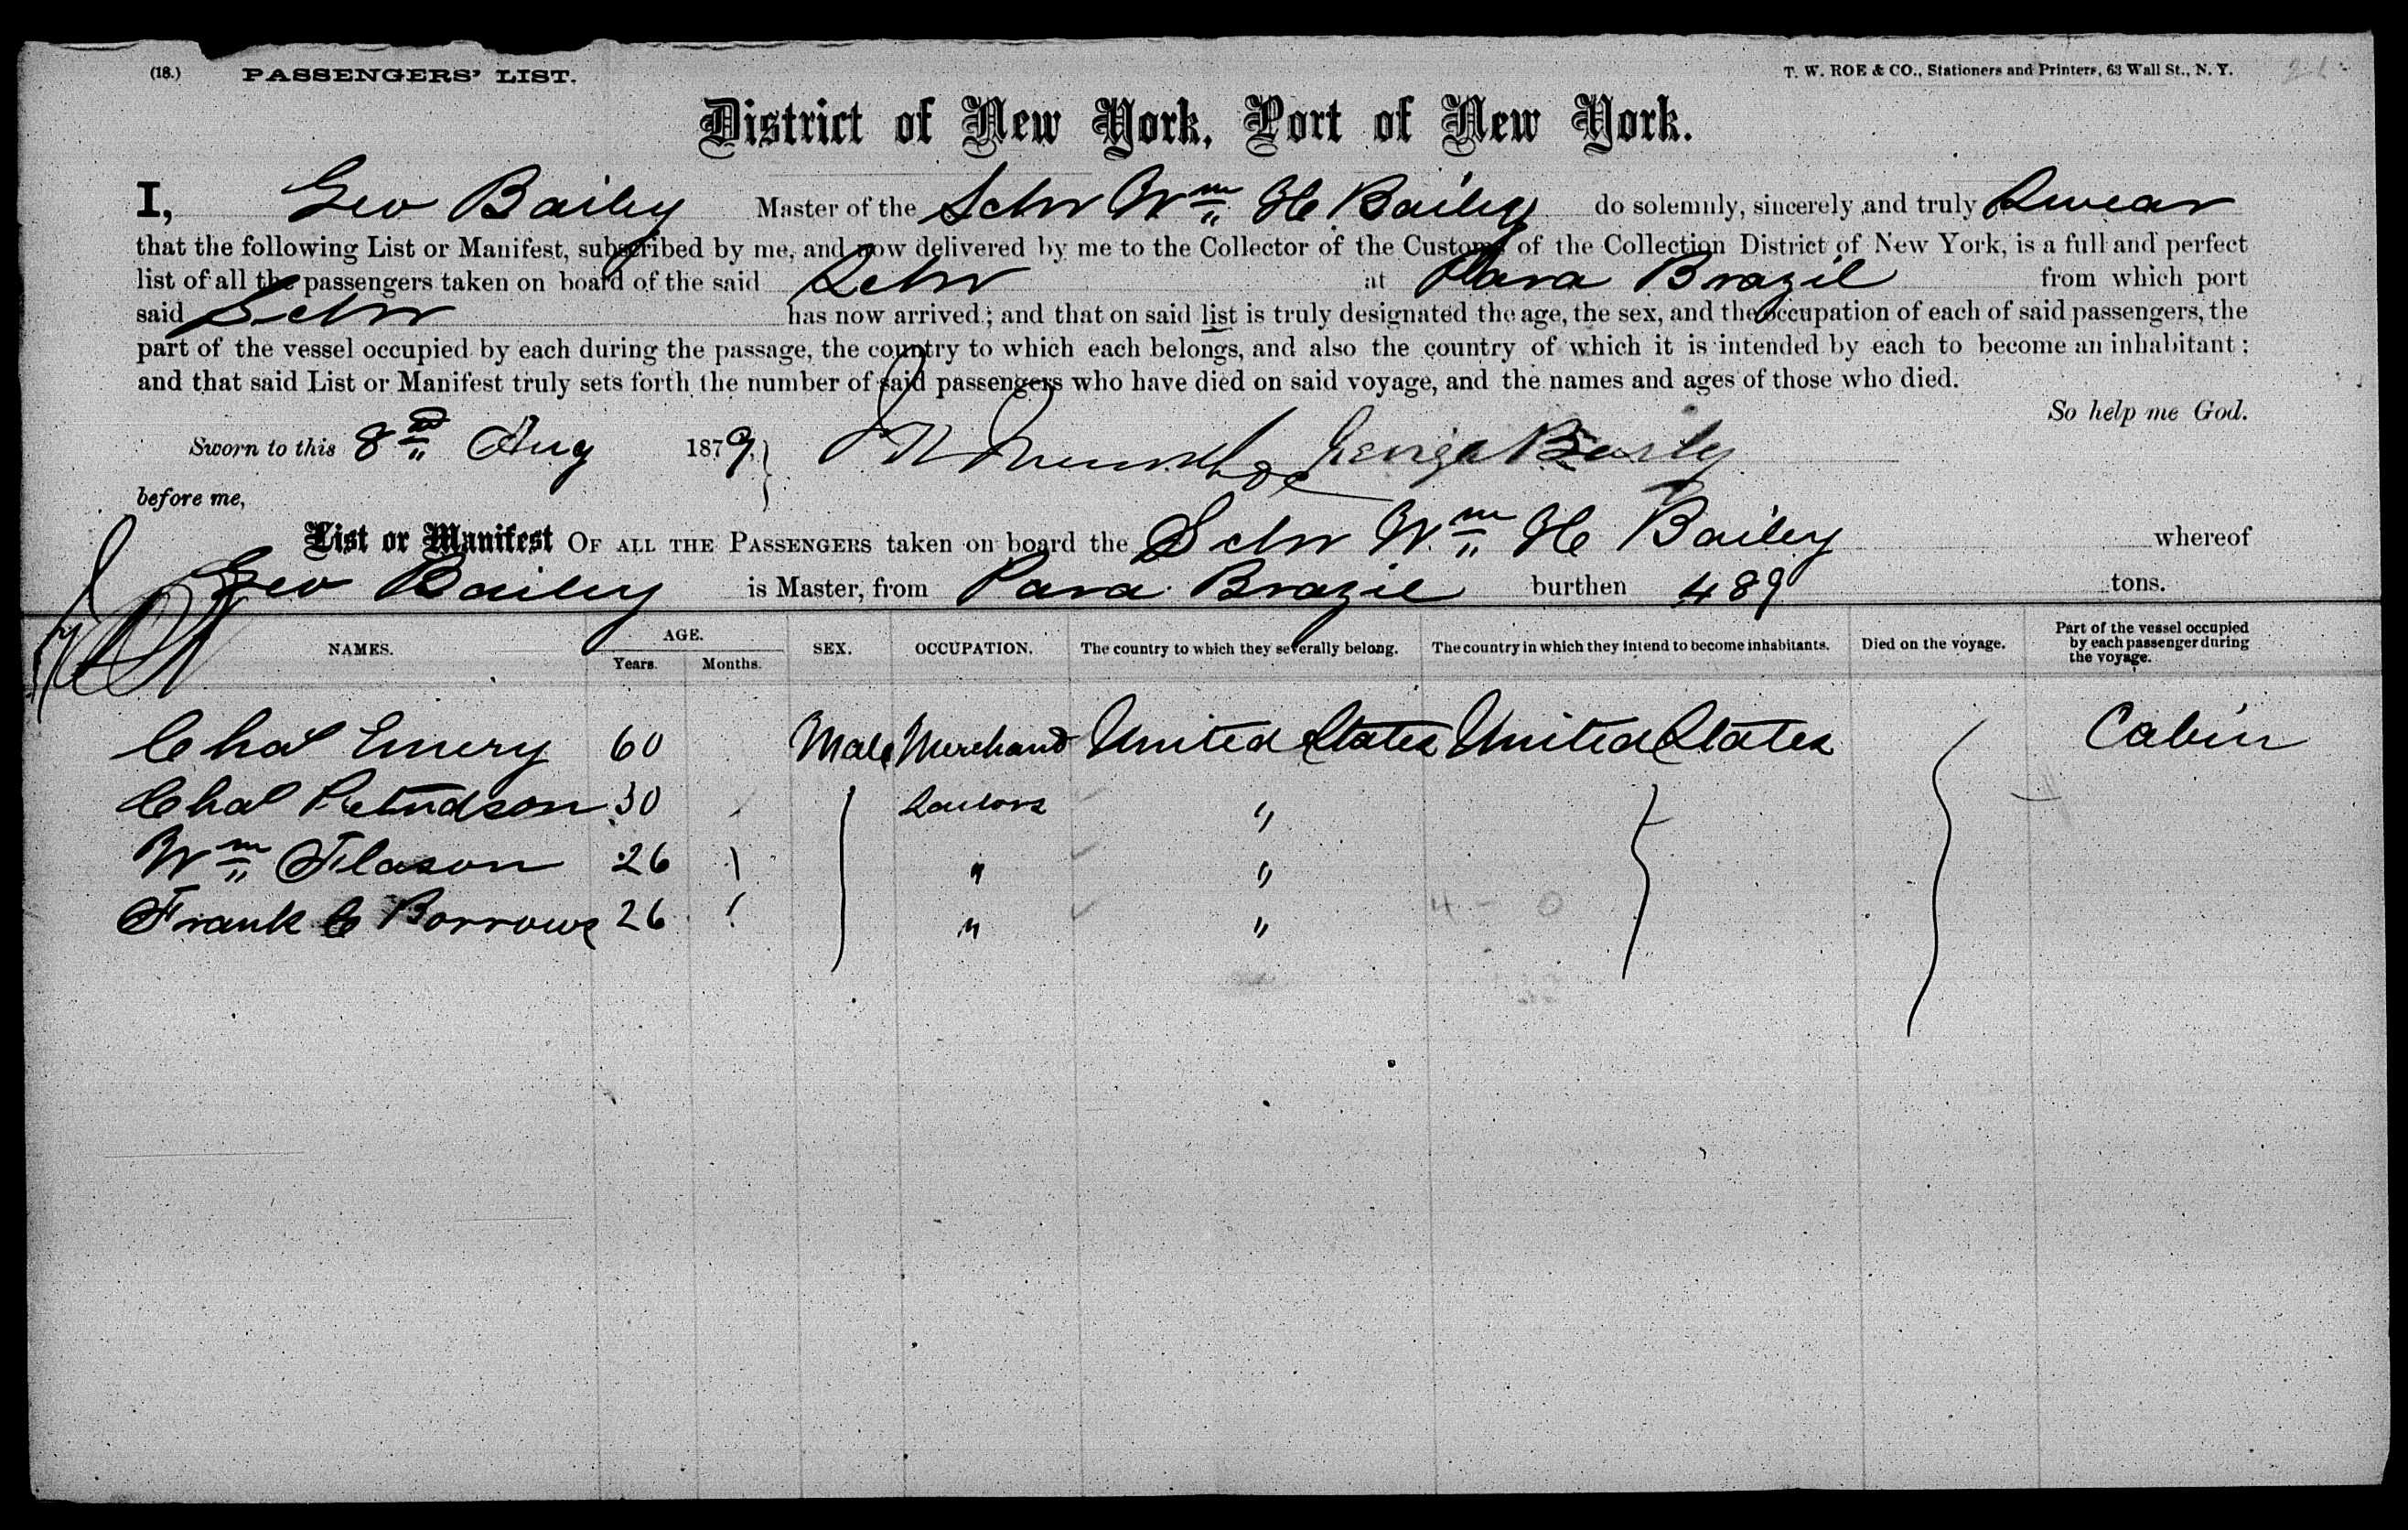 (18.) PASSENGERS' LIST. T. W. ROE & CO., Stationers and Printers, 63 Wall St., N. Y.
District of New York, Port of New York.
I, Geo Bailey Master of the Schr Wm H Bailey do solemnly, sincerely and truly Swear
that the following List or Manifest, subscribed by me, and now delivered by me to the Collector of the Customs of the Collection District of New York, is a full and perfect
list of all the passengers taken on board of the said Schr at Para Brazil from which port
said Schr has now arrived; and that on said list is truly designated the age, the sex, and the occupation of each of said passengers, the
part of the vessel occupied by each during the passage, the country to which each belongs, and also the country of which it is intended by each to become an inhabitant;
and that said List or Manifest truly sets forth the number of said passengers who have died on said voyage, and the names and ages of those who died.
So help me God.
Sworn to this 8th Aug 1879, George Baily
before me,
List or Manifest OF ALL THE PASSENGERS taken on board the Schr Wm H Bailey whereof
Geo Bailey is Master, from Para Brazil burthen 489 tons.
NAMES. AGE. Years. Months. SEX. OCCUPATION. The country to which they severally belong. The country in which they intend to become inhabitants. Died on the voyage. Part of the vessel occupied by each passenger during the voyage.
Chas Emery 60 Male Merchant United States United States Cabin
Chas 30 Sailors "
Wm Flason 26 " "
Frank C Borrows 26 " "
4 - 0